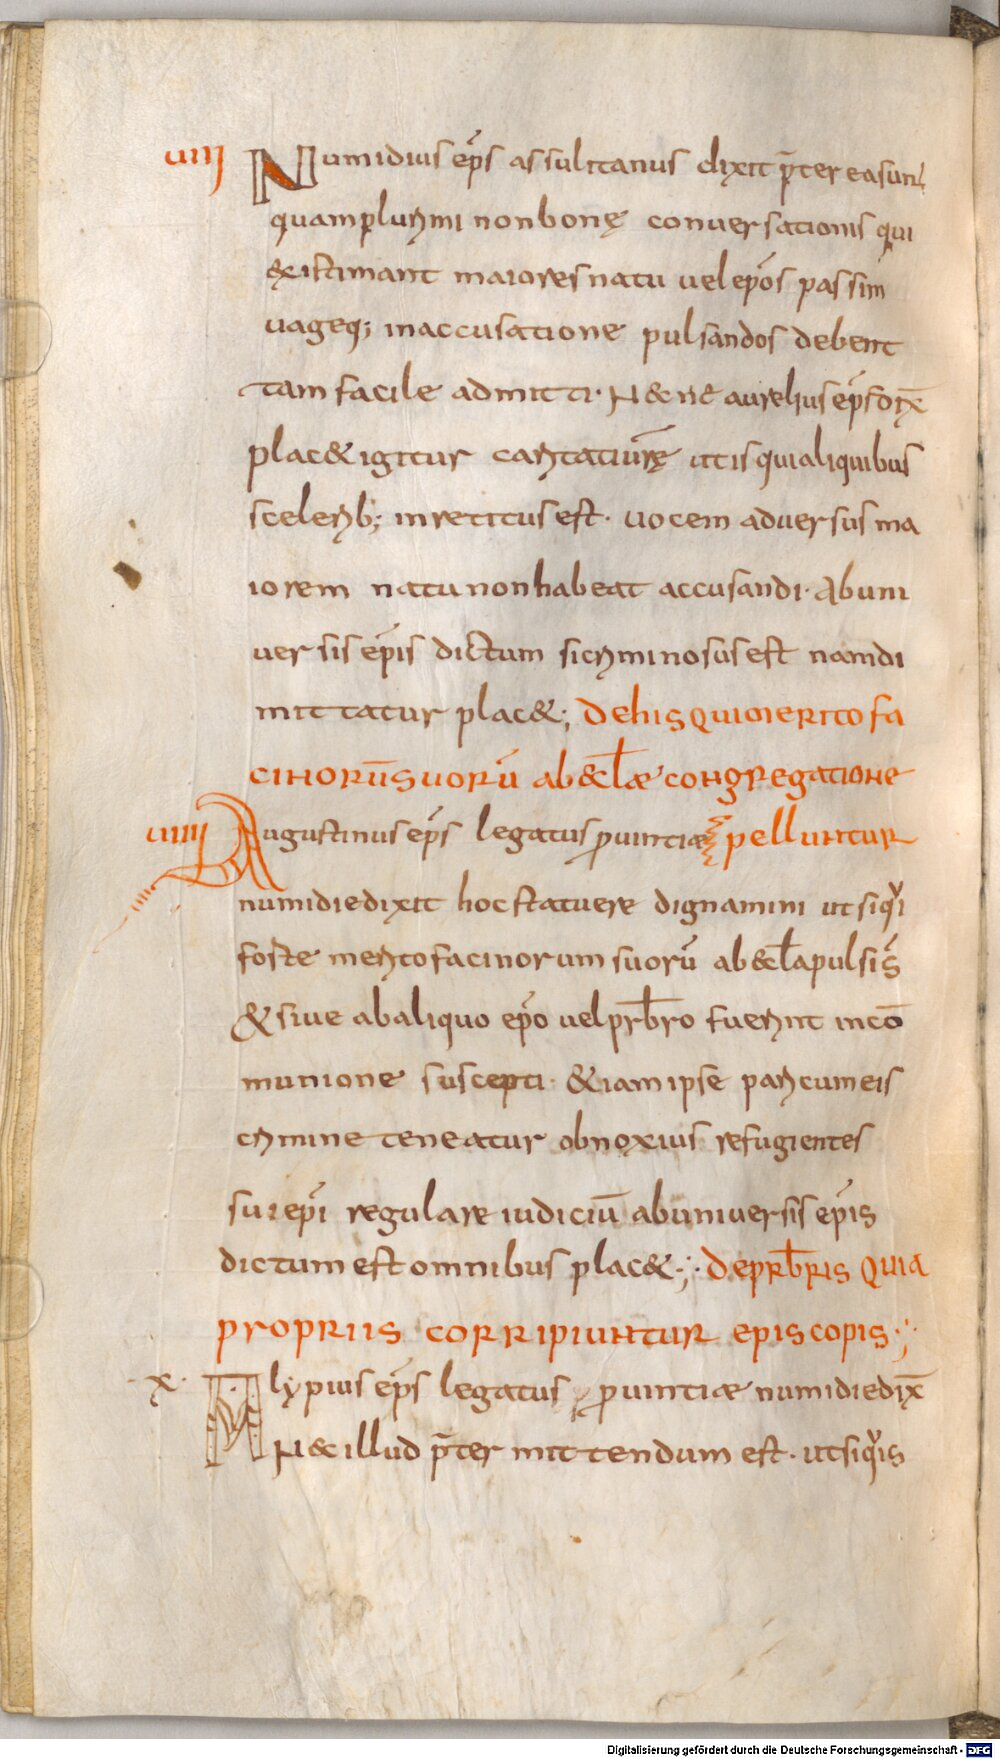 uiii Numidius ep̄s assulitanus dixit p̄terea sunt
quam plurimi non bonę conuersationis qui
&istimant maiores natu uel ep̄os passim
uageq; in accusatione pulsandos debent
tam facile admitti· N& nc̄ aurelius ep̄s dix̄
plac& igitur caritati ur̄ę ut is qui aliquibus
scelerib; inretitus est· uocem aduersus ma
iorem natu non habeat accusandi· Ab uni
uersis ep̄is dictum si criminosus est nam di
mittatur plac&; de his qui merito fa
cinorū suorū ab &cl̄æ congregatione
uiiii Augustinus ep̄s legatus ꝓuintiæ pelluntur
numidie dixit hoc statuere dignamini ut si qui
foste merito facinorum suorū ab &cl̄a pulsis̄
& siue ab aliquo ep̄o uel pr̄b̄ro fuerint in cō
munione suscepti· &iam ipse pari cum eis
crimine teneatur obnoxius refugientes
sui ep̄i regulare iudiciū ab uniuersis ep̄is
dictum est omnibus plac&·;· de pr̄b̄ris qui a
propriis corripiuntur episcopis·;·
·x· Alypius ep̄s legatus ꝓuintiæ numidie dix̄
N& illud p̄termittendum est· ut si quis
Digitalisierung gefördert durch die Deutsche Forschungsgemeinschaft - DFG